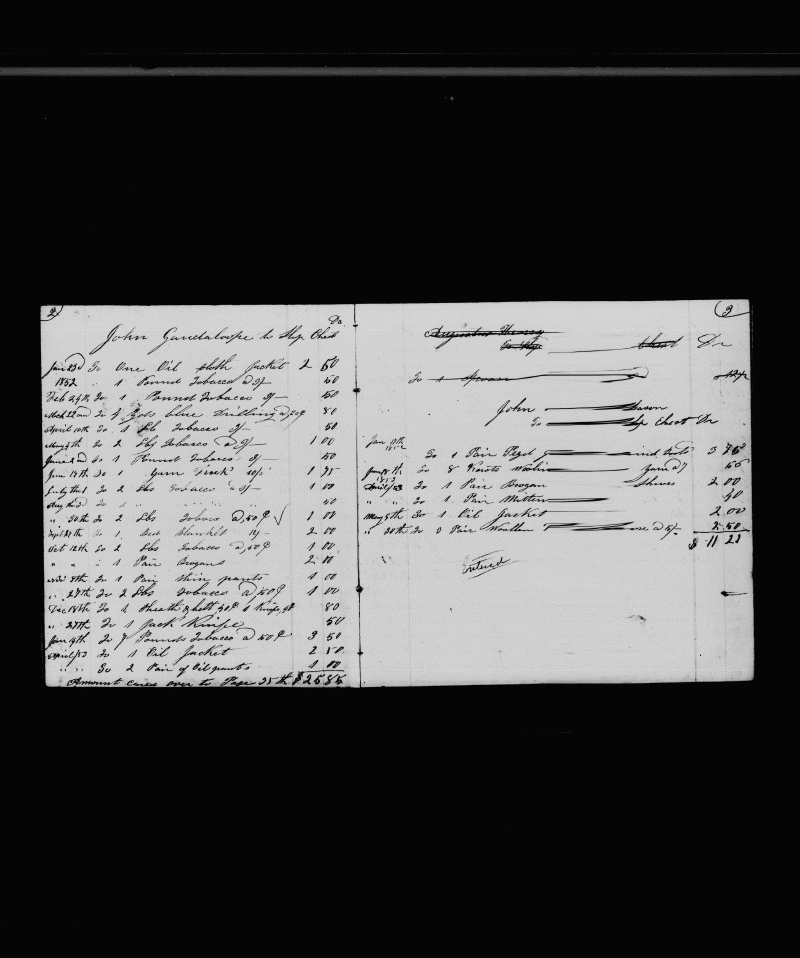 2
Dr
John Gaudaloope to Ship Chest
Jan 23d To One Oil cloth Jacket 2 50
1852 " 1 Pound Tobacco a 3/- 50
Feb 24th To 1 Pound Tobacco 3/- 50
Mch 22nd To Yds blue Drilling a 80
April 10th To 1 Lb Tobacco 3/- 50
May 4th To 2 Lbs Tobacco a 3/- 1 00
June 2nd To 1 Pound Tobacco 3/- 50
June 18th To 1 1 75
July To 2 Lbs Tobacco a 3/- 1 00
Aug To 1 " 50
" 30th To 2 Lbs Tobacco a 50¢ 1 00
Sept 21th To 1 Bed Blanket 12/- 2 00
Oct 12th To 2 Lbs Tobacco a 50¢ 1 00
" " " 1 Pair Brogans 2 00
8th To 1 Pair thin pants 1 00
" 27th To 2 Lbs Tobacco a 50¢ 1 00
Dec 18th To 1 Sheath & belt 40¢ 1 Knife 40 80
" 27th To 1 Jack Knife 50
Jan 19th To 7 Pounds Tobacco a 50¢ 3 50
April /53 To 1 Oil Jacket 2 50
" " To 2 Pair of Oil pants 1 00
Amount over to Page 25th $25 85
3
Augustus Henry
To Ship Chest Dr
To 1
John Mason
To Ship Chest Dr
Jan 19th
1852
To 1 Pair Peged 3 75
To 8 Knots Yarn a 7 56
1853
April /53 To 1 Pair Brogan Shoes 2 00
" " To 1 Pair Mitten 40
May 5th To 1 Oil Jacket 2 00
" 30th To Pair Woollen a 5/- 2 50
$ 11 21
Entered